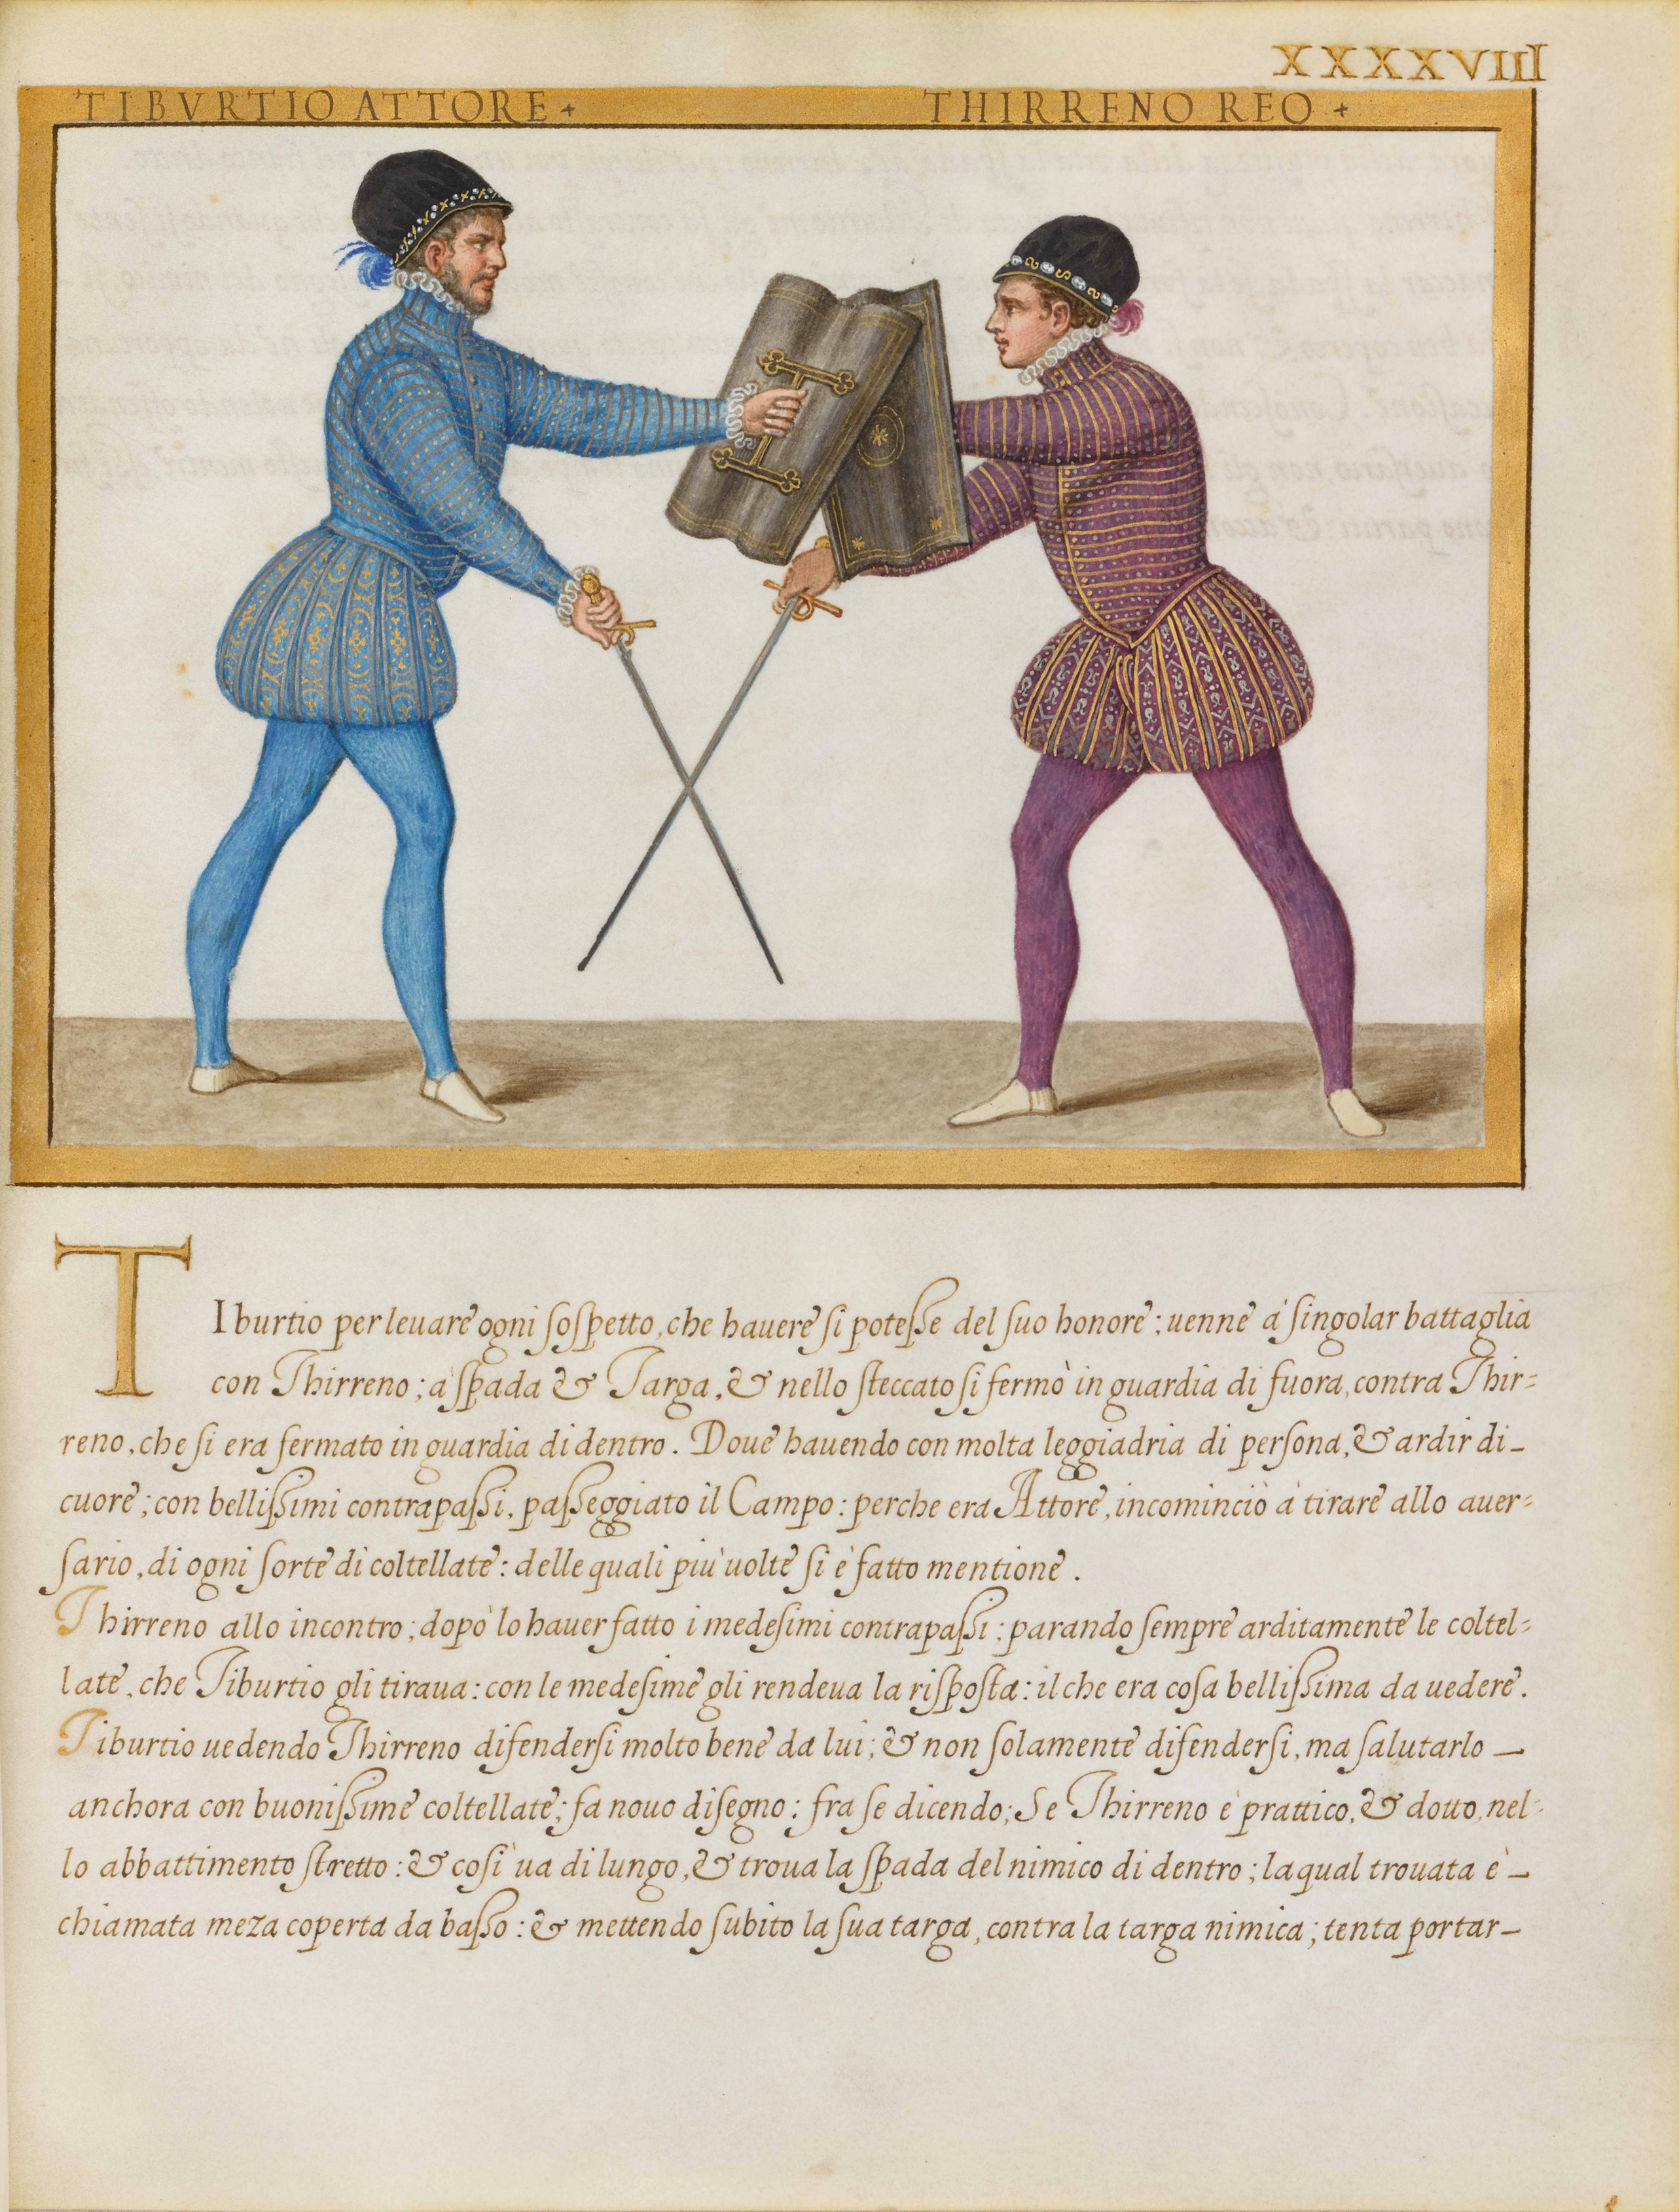 XXXXVIIII
TIBVRTIO ATTORE+
THIRRENO REO+
TIburtio per leuare ogni ſoſpetto, che hauere ſi poteſſe del ſuo honore; uenne à ſingolar battaglia
con Thirreno; à ſpada & Targa, & nello ſteccato ſi fermò in guardia di fuora, contra Thir=
reno, che ſi era fermato in guardia di dentro. Doue hauendo con molta leggiadria di perſona, & ardir di_
cuore; con belliſſimi contrapaſſi, paſſeggiato il Campo: perche era Attore, incominciò à tirare allo auer=
ſario, di ogni ſorte di coltellate: delle quali più uolte ſi è fatto mentione.
Thirreno allo incontro; dopò lo hauer fatto i medeſimi contrapaſſi; parando ſempre arditamente le coltel=
late, che Tiburtio gli tiraua: con le medeſime gli rendeua la riſpoſta: il che era coſa belliſſima da uedere.
Tiburtio uedendo Thirreno difenderſi molto bene da lui; & non ſolamente difenderſi, ma ſalutarlo _
anchora con buoniſſime coltellate; fa nouo diſegno: fra ſe dicendo; Se Thirreno è prattico, & dotto, nel=
lo abbattimento ſtretto: & coſì ua di lungo, & troua la ſpada del nimico di dentro; laqual trouata è _
chiamata meza coperta da baſſo: & mettendo ſubito la ſua targa, contra la targa nimica; tenta portar_